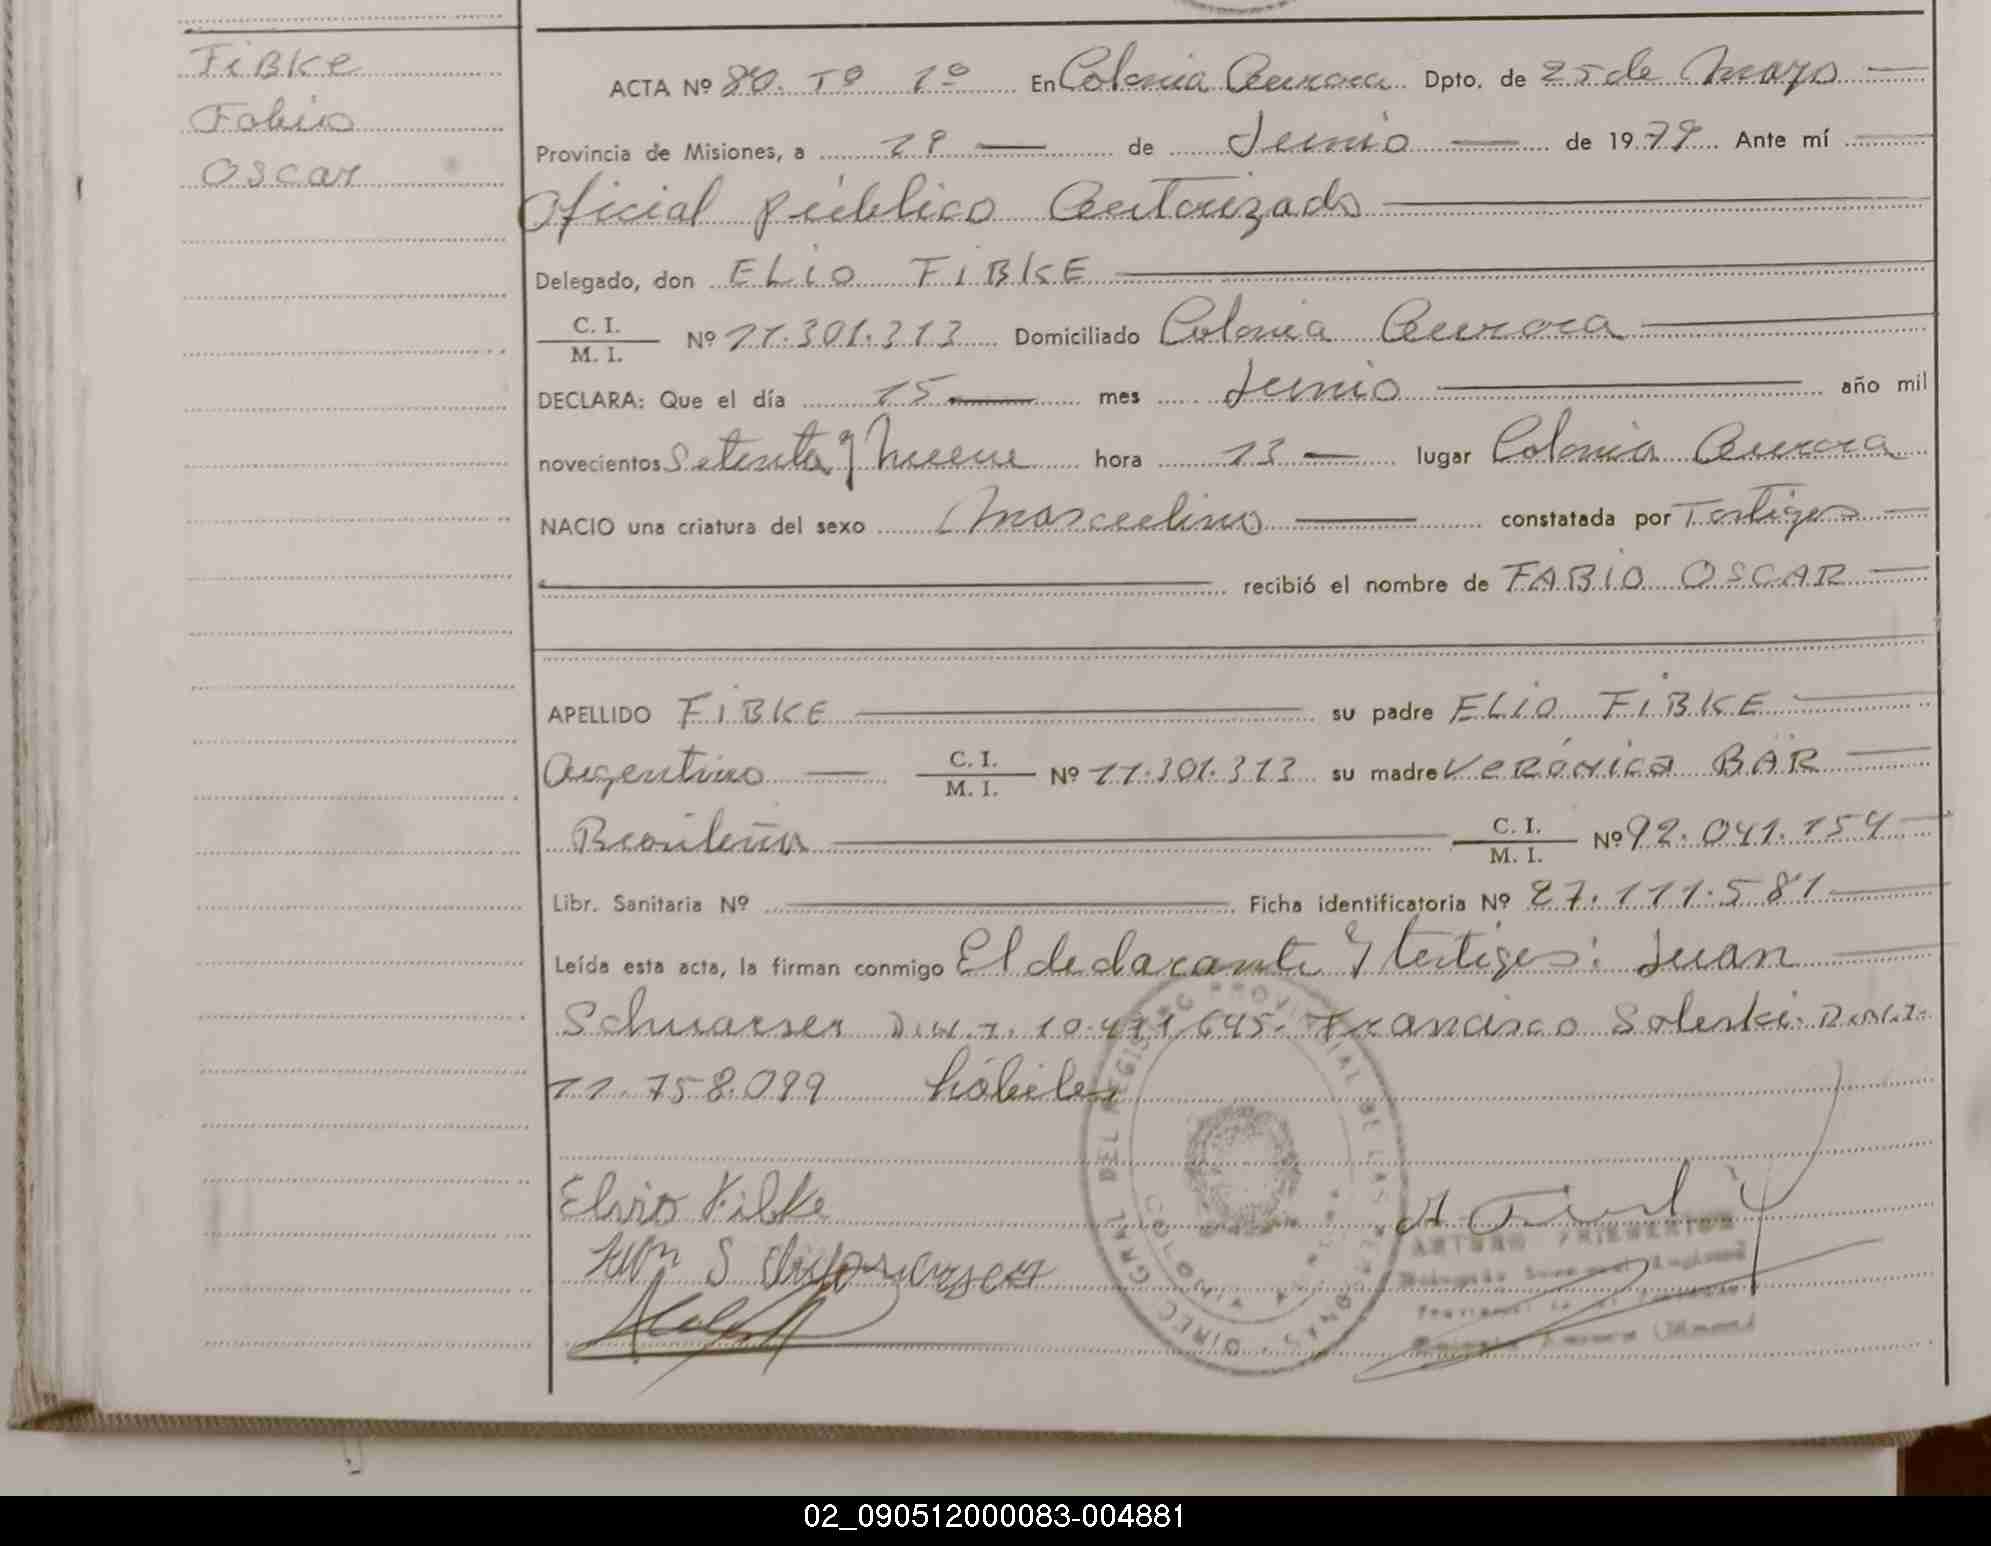 Fibke
Fabio
Oscar
ACTA Nº 80. Tº 1º En Colonia Aurora Dpto. de 25 de Mayo
Provincia de Misiones, a 19 de Junio de 1979. Ante mí
Oficial público Autorizado
Delegado, don ELIO FIBKE
C. I.
M. I. Nº 11.301.313 Domiciliado Colonia Aurora
DECLARA: Que el día 15 mes Junio año mil
novecientos Setenta y Nueve hora 13 lugar Colonia Aurora
NACIO una criatura del sexo Masculino constatada por Testigos
recibió el nombre de FABIO OSCAR
APELLIDO FIBKE su padre ELIO FIBKE
Argentino C. I.
M. I. Nº 11.301.313 su madre VERÓNICA BÄR
Brasileña C. I.
M. I. Nº 92.041.154
Libr. Sanitaria Nº Ficha identificatoria Nº 27.111.581
Leída esta acta, la firman conmigo El declarante y testigos: Juan
Schwarser D.N.I. 10.411.645. Francisco Soleski. D.N.I.
11.758.099 hábiles
Elvio Fibke
DIREC. GRAL. DEL REGISTRO PROVINCIAL DE LAS PERSONAS
COLONIA AURORA
02_090512000083-004881